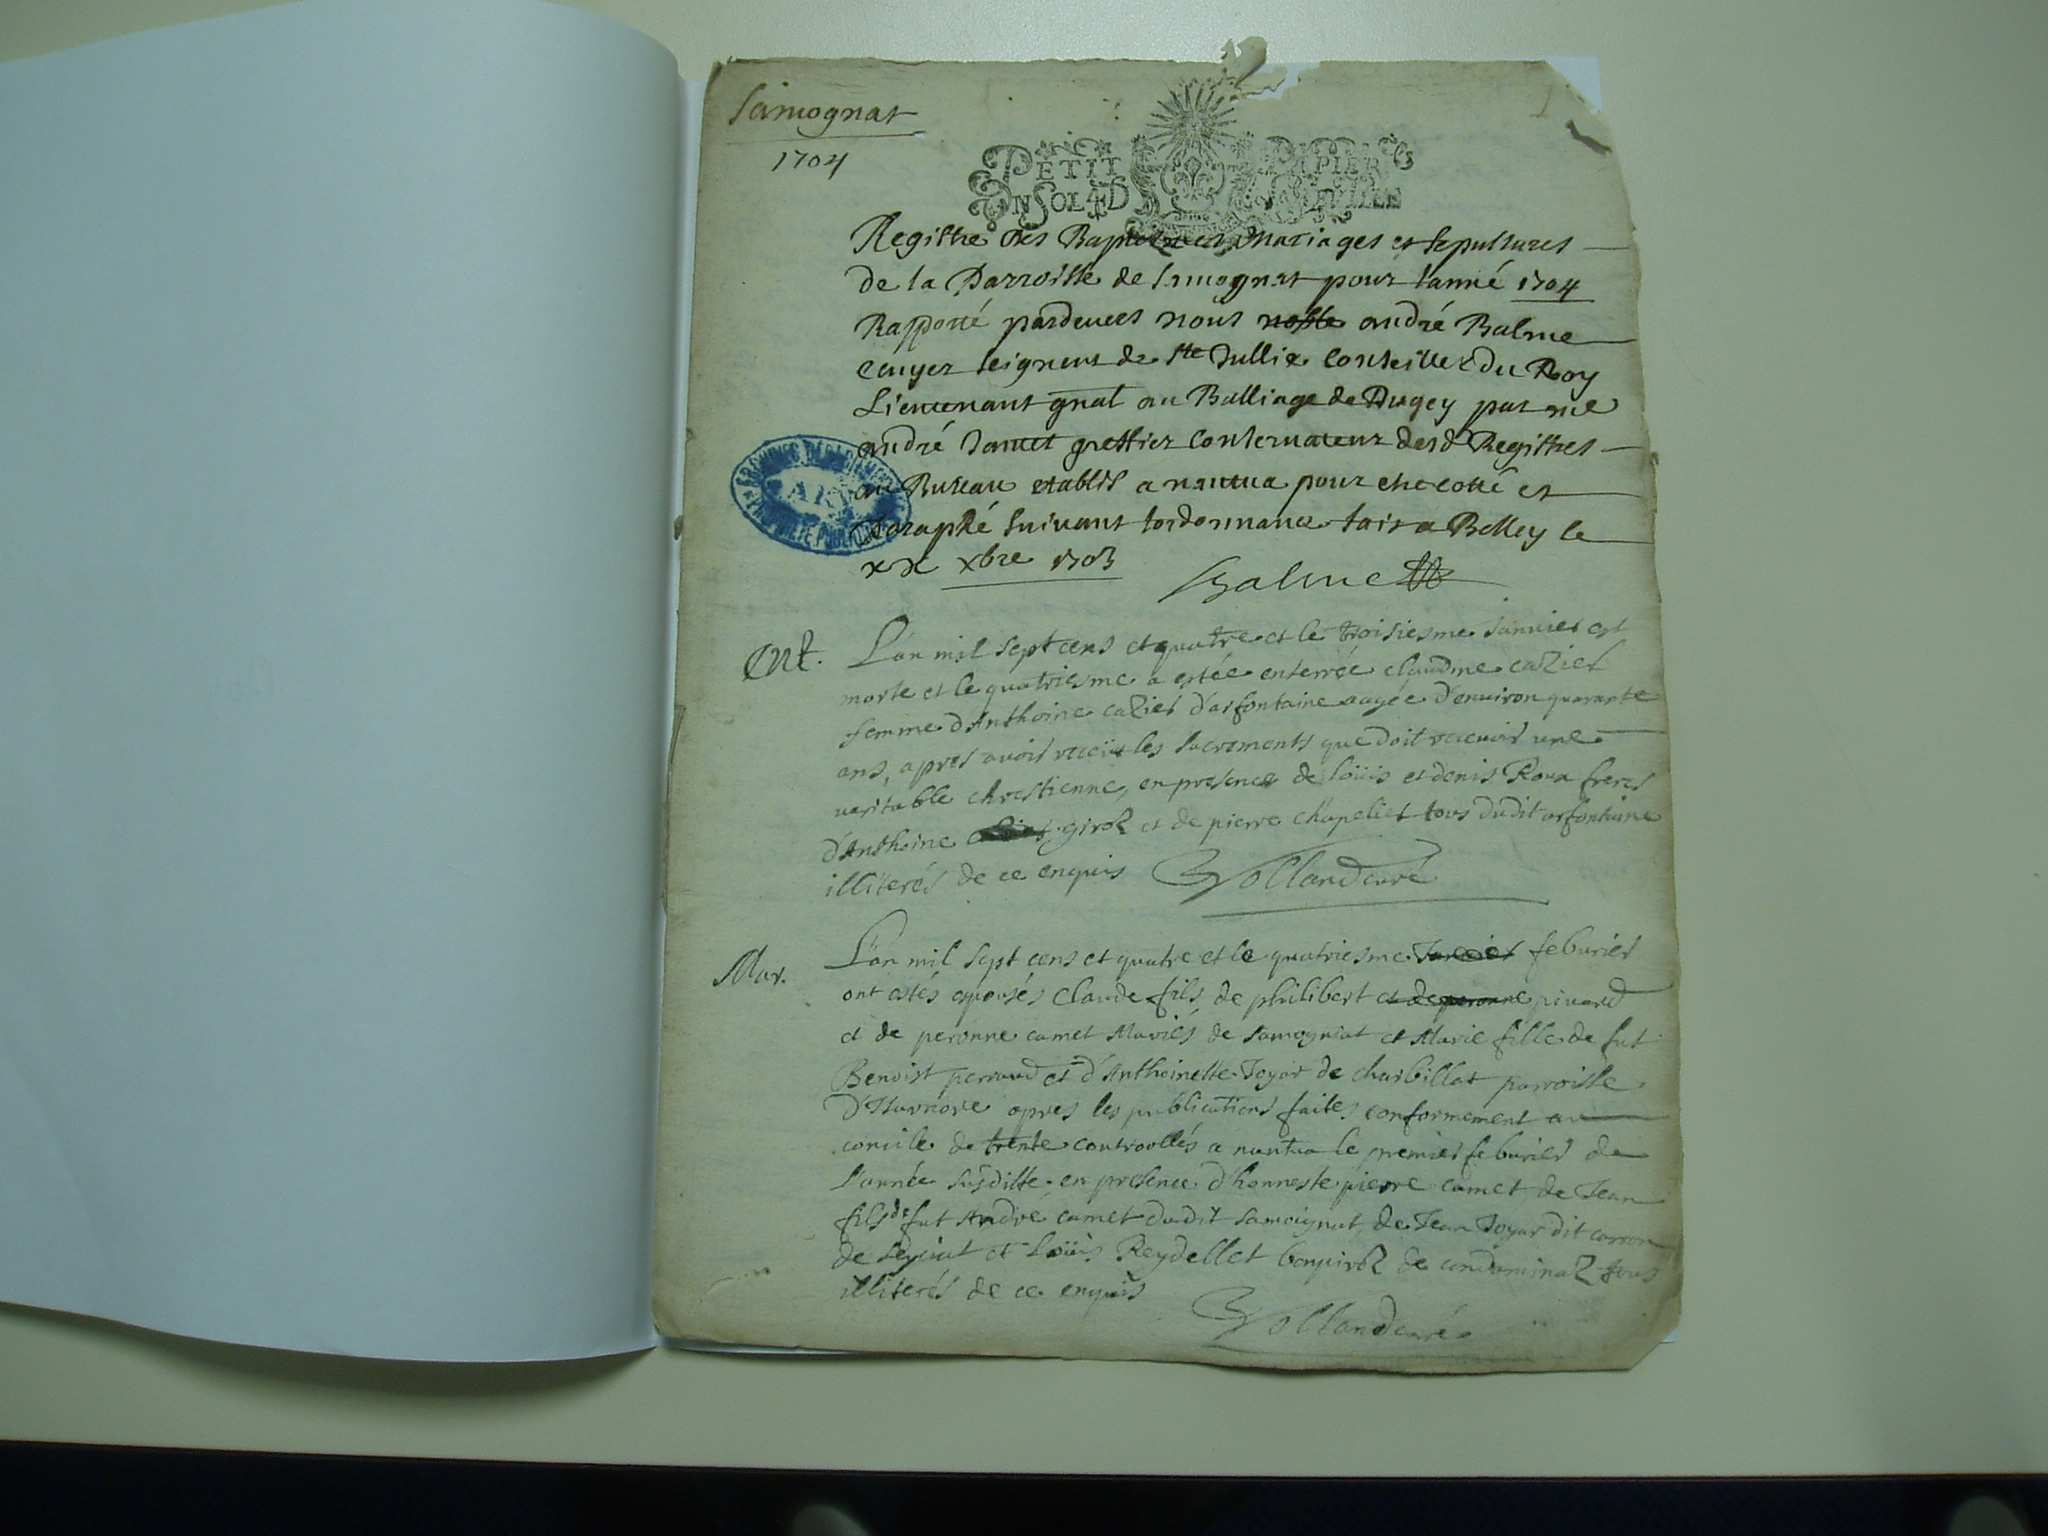 Samognat
1704
PETIT PAPIER
UN SOL 4 D LA FEUILLE
Registre des Baptesmes Mariages et sepultures
de la Parroisse de samognat pour lanné 1704
Rapporté pardevers nous noble andré Balme
ecuyer seigneur de Ste Jullie conseiller du Roy
Lieutenant gnal au Balliage de Bugey par me
andré Jantet greffier conservateur desd Registres
au Bureau establis a nantua pour etre cotté et
paraphé suivant lordonnance fait a Belley le
xx xbre 1703
Balme
ARCHIVES DEPARTEMENTALES
AIN
Ent. L'an mil sept cens et quatre et le troisiesme Janvier est
morte et le quatriesme a estée enterrée claudine cazier
femme d'Anthoine cazier d'arfontaine aagée d'environ quarante
ans, apres avoir receüt les sacrements que doit recevoir une
veritable chrestienne, en presence de loüis et denis Roux freres
d'Anthoine girod et de pierre chapelier tous dudit arfontaine
illiterés de ce enquis Volland curé
Mar. L'an mil sept cens et quatre et le quatriesme Janvier feburier
ont estés epousés Claude fils de philibert et de peronne pinard
et de peronne camet Mariés de samogniat et Marie fille de fut
Benoist perraud et d'Anthoinette Joyar de charbillat parroisse
d'Izernore apres les publications faites conformement au
concile de trente controollés a nantua le premier feburier de
l'année susditte en presence d'honneste pierre camet de Jean
fils de fut André camet dudit samoignat, de Jean Joyar dit carron
de seyciat et Loüis Reydellet bonpiroz de condaminaz tous
illiterés de ce enquis
Volland curé